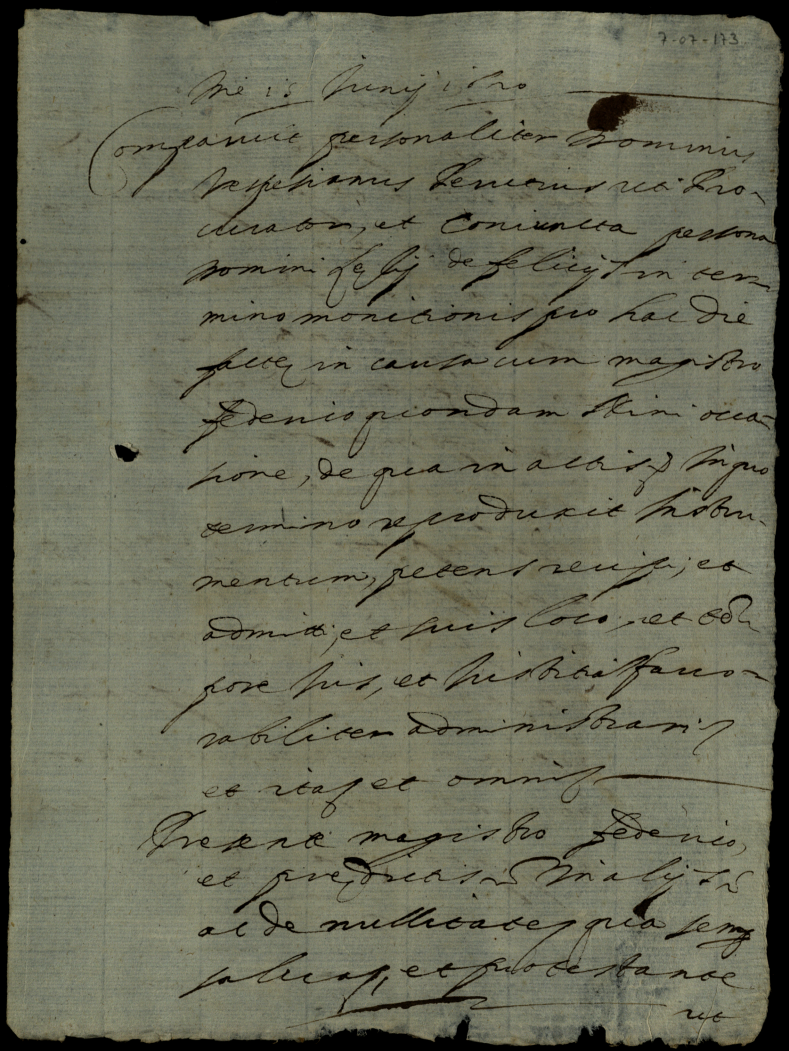 7-07-173
Die 15 Junij 1
Comparuit personaliter Dominus
Vespesianus uti Pro-
curator, et Coniuncta persona
Domini de felicijs in ter-
mino monitionis pro hac die
factę in causa cum magistro
Federico quondam occa-
sione, de qua in actis In quo
termino reproduxit Instru-
mentum, petens recipi, et
admitti, et suis loco, et tem-
pore Jus, et Justitiã favo-
rabiliter administrari
et ita et omni
Presente magistro Federico,
et predictis In alijs
ac de nullitate, qua semp
salua, et protestante
ut